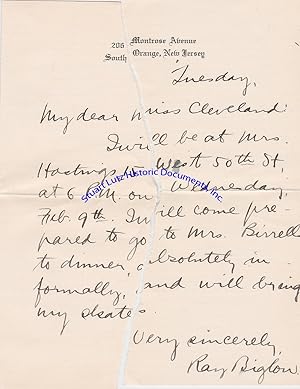 206 Montrose Avenue
South Orange, New Jersey
Tuesday,
My dear Miss Cleveland:
I will be at Mrs.
Hastings 15 West 50th St,
at 6 P.M. on Wednesday,
Feb. 9th. I will come pre-
pared to go to Mrs. Birrell
to dinner, absolutely in
formally, and will bring
my skates.
Very sincerely,
Ray Biglow
Stuart Lutz Historic Documents, Inc.